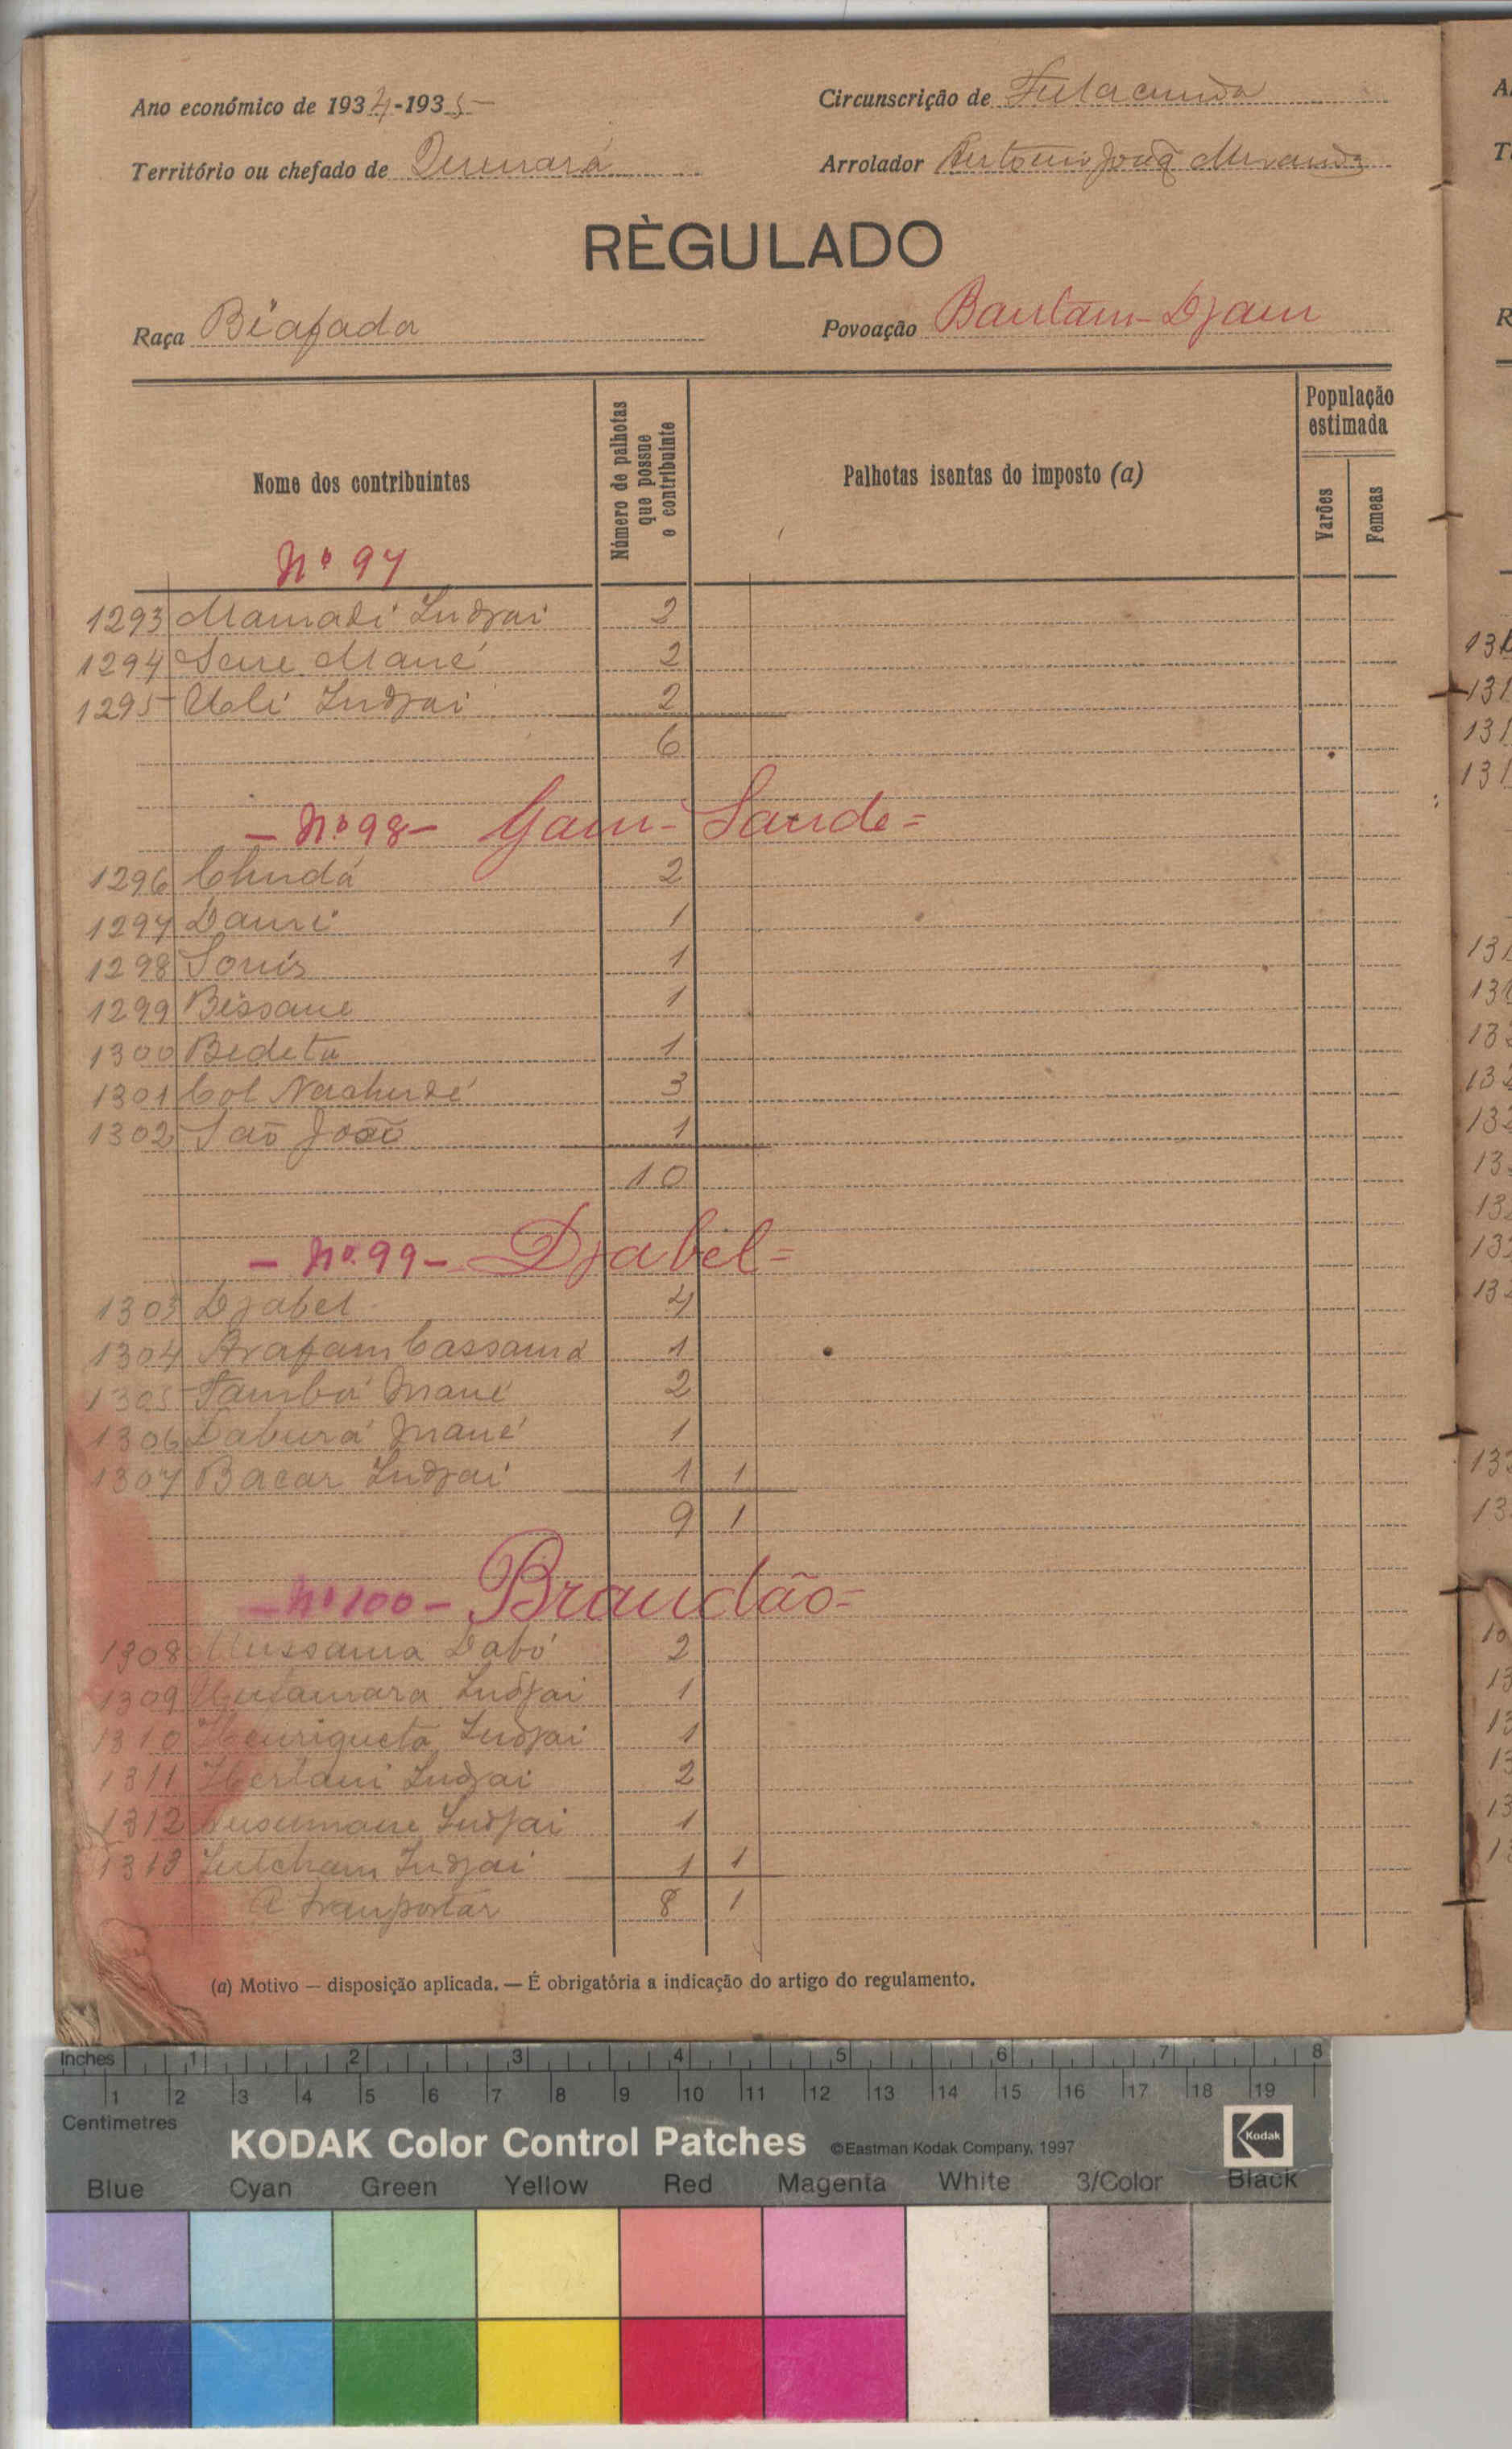 Ano económico de 1934-1935
Circunscrição de Fulacunda
Território ou chefado de Quinará
Arrolador António Miranda
RÈGULADO
Raça Biafada
Povoação Bantam-Djam
Nome dos contribuintes
Número de palhotas que possue o contribuinte
Palhotas isentas do imposto (a)
População estimada
Varões
Femeas
Nº 97
1293 Mamadi Indjai 2
1294 Mané 2
1295 Indjai 2
6
- Nº 98 - Gam-Sande =
1296 2
1297 1
1298 1
1299 Bissane 1
1300 Bedeta 1
1301 Col 3
1302 São João 1
10
- Nº 99 - Djabel =
1303 Djabel 4
1304 Arafam Cassamá 1
1305 Tamba Mané 2
1306 Mané 1
1307 Bacar Indjai 1 1
9 1
- Nº 100 - Brandão =
1308 Dabó 2
1309 Indjai 1
1310 Henriqueta Indjai 1
1311 Indjai 2
1312 Indjai 1
1313 Indjai 1 1
A tranportar 8 1
(a) Motivo — disposição aplicada. — É obrigatória a indicação do artigo do regulamento.
Inches 1 2 3 4 5 6 7 8
1 2 3 4 5 6 7 8 9 10 11 12 13 14 15 16 17 18 19
Centimetres
KODAK Color Control Patches ©Eastman Kodak Company, 1997 Kodak
Blue Cyan Green Yellow Red Magenta White 3/Color Black